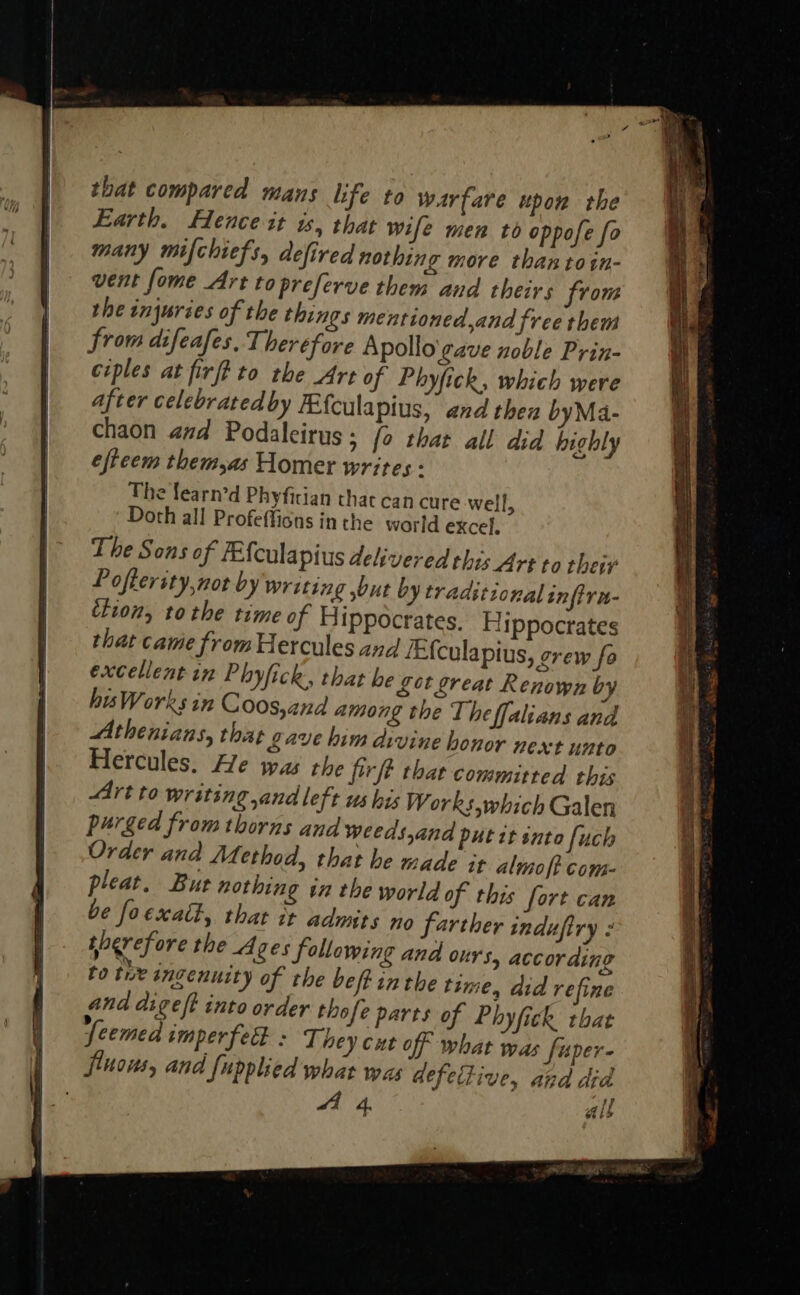 that compared mans life to warfare upon the
Earth. Hence it is, that wiſe men to oppoſe ſo
many miſchiefs, deſired nothing more than to in-
vent ſome Art to preſerve them and theirs from
the injuries of the things mentioned, and free them
from diſeaſes. Therefore Apollo gave noble Prin-
ciples at firſt to the Art of Phyſick, which were
after celebrated by Æſculapius, and then by Ma-
chaon and Podaleirus; ſo that all did highly
eſteem them, as Homer writes:
The learn'd Phyſitian that can cure well,
Doth all Profeſſions in the world excel.
The Sons of Æſculapius delivered this Art to their
Poſterity, not by writing, but by traditional inſtru-
ction, to the time of Hippocrates. Hippocrates
that came from Hercules and Æſculapius, grew ſo
excellent in Phyſick, that he got great Renown by
his Works in Coos, and among the Theſſalians and
Athenians, that gave him divine honor next unto
Hercules. He was the firſt that committed this
Art to writing, and left us his Works, which Galen
purged from thorns and weeds, and put it into ſuch
Order and Method, that he made it almoſt com-
pleat. But nothing in the world of this ſort can
be ſo exact, that it admits no farther induſtry:
therefore the Ages following and ours, according
to the ingenuity of the beſt in the time, did refine
and digeſt into order thoſe parts of Phyſick that
ſeemed imperfect: They cut off what was ſuper-
fluous, and ſupplied what was defective, and did
A 4 all